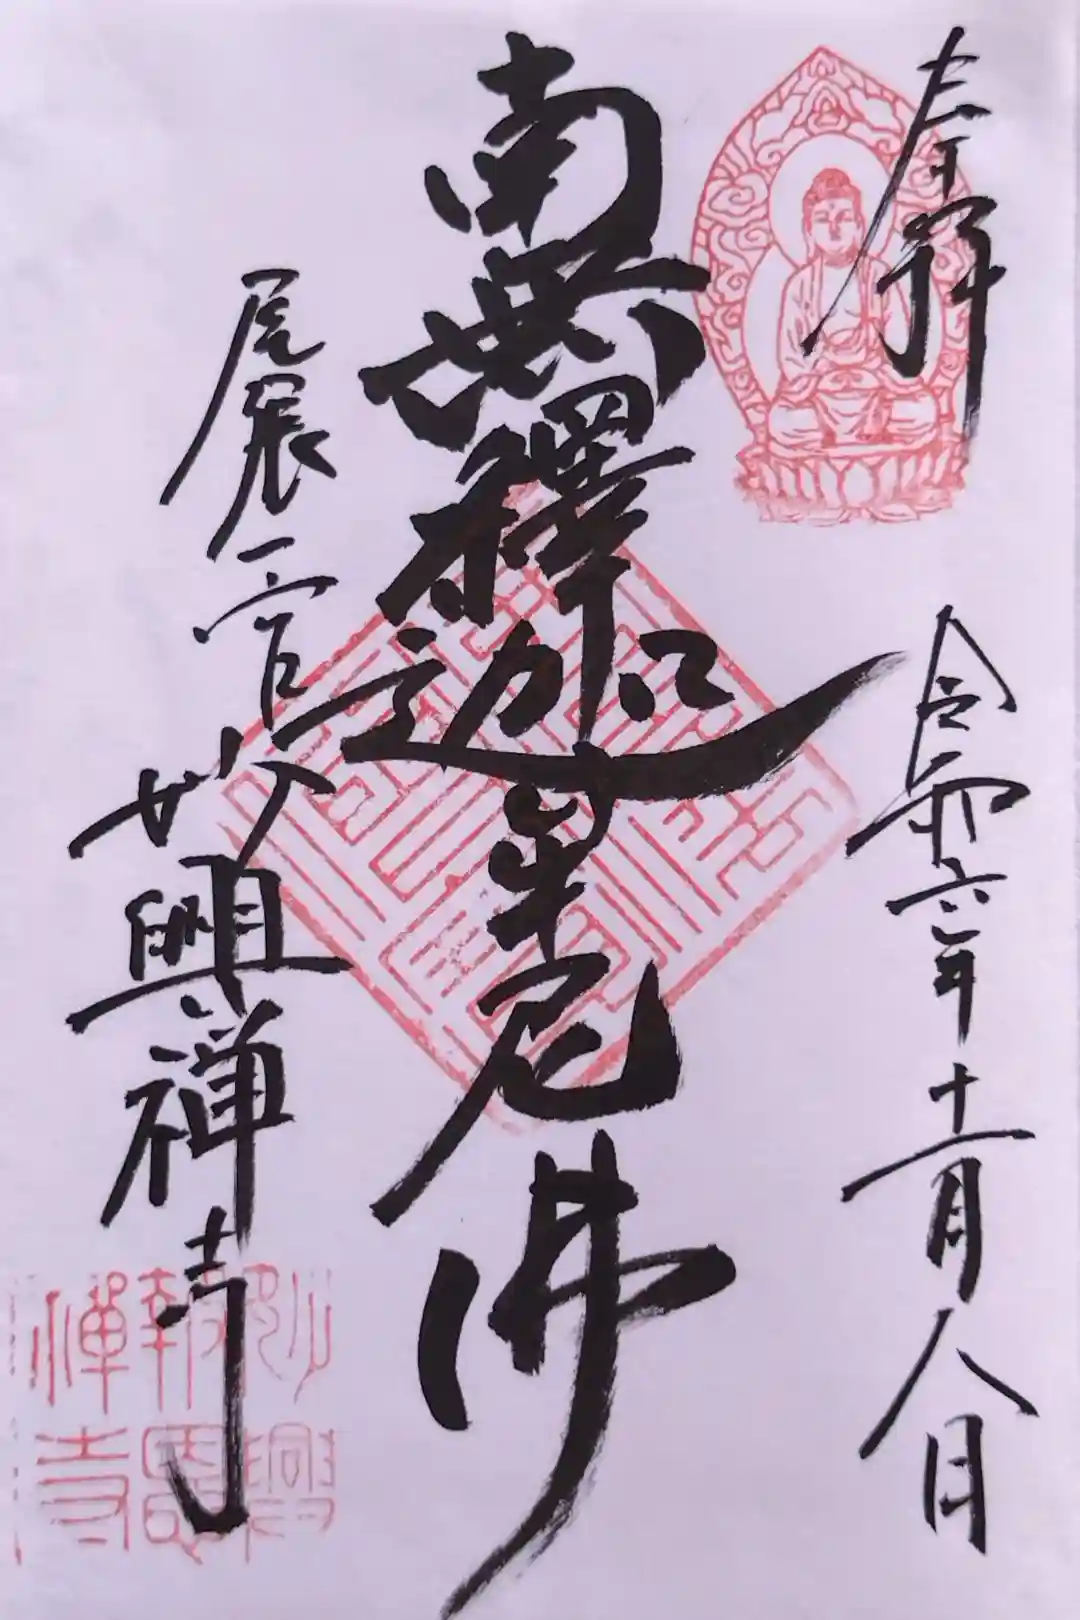 奉拝
令和六年十二月八日
南無釋迦牟尼佛
尾張一宮
妙興禅寺
妙興報恩禅寺